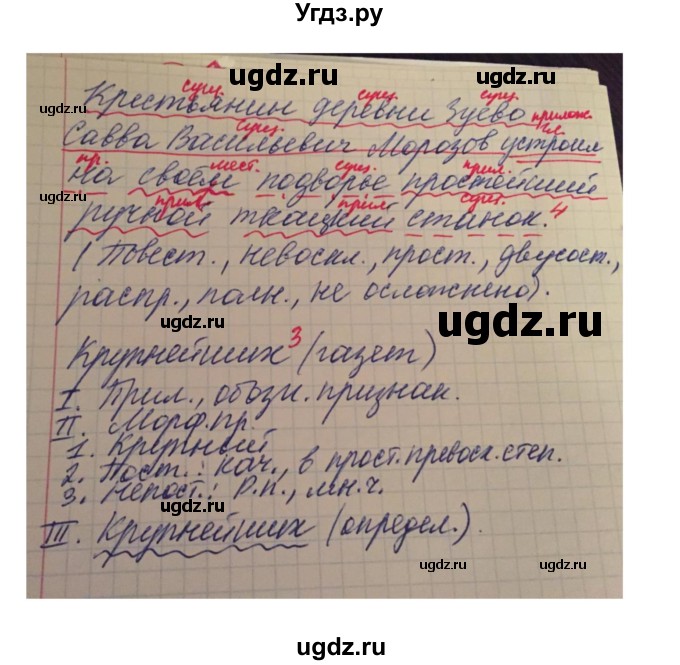 Угдз.ру
сущ. сущ. сущ.
Крестьянин деревни Зуево
прилож.
сущ. гл.
Савва Васильевич Морозов устроил
пр. мест. сущ. прил.
на своём подворье простейший
прил. прил. сущ.
ручной ткацкий станок. 4
(Повест., невоскл., прост., двусост.,
распр., полн., не осложнено).
Крупнейших 3 (газет)
I. Прил., обозн. признак.
II. Морф. пр.
1. Крупный
2. Пост.: кач., в прост. превосх. степ.
3. Непост.: Р.п., мн.ч.
III. Крупнейших (определ.).
ugdz.ru
ugdz.ru
ugdz.ru
ugdz.ru
ugdz.ru
ugdz.ru
ugdz.ru
ugdz.ru
ugdz.ru
ugdz.ru
ugdz.ru
ugdz.ru
ugdz.ru
ugdz.ru